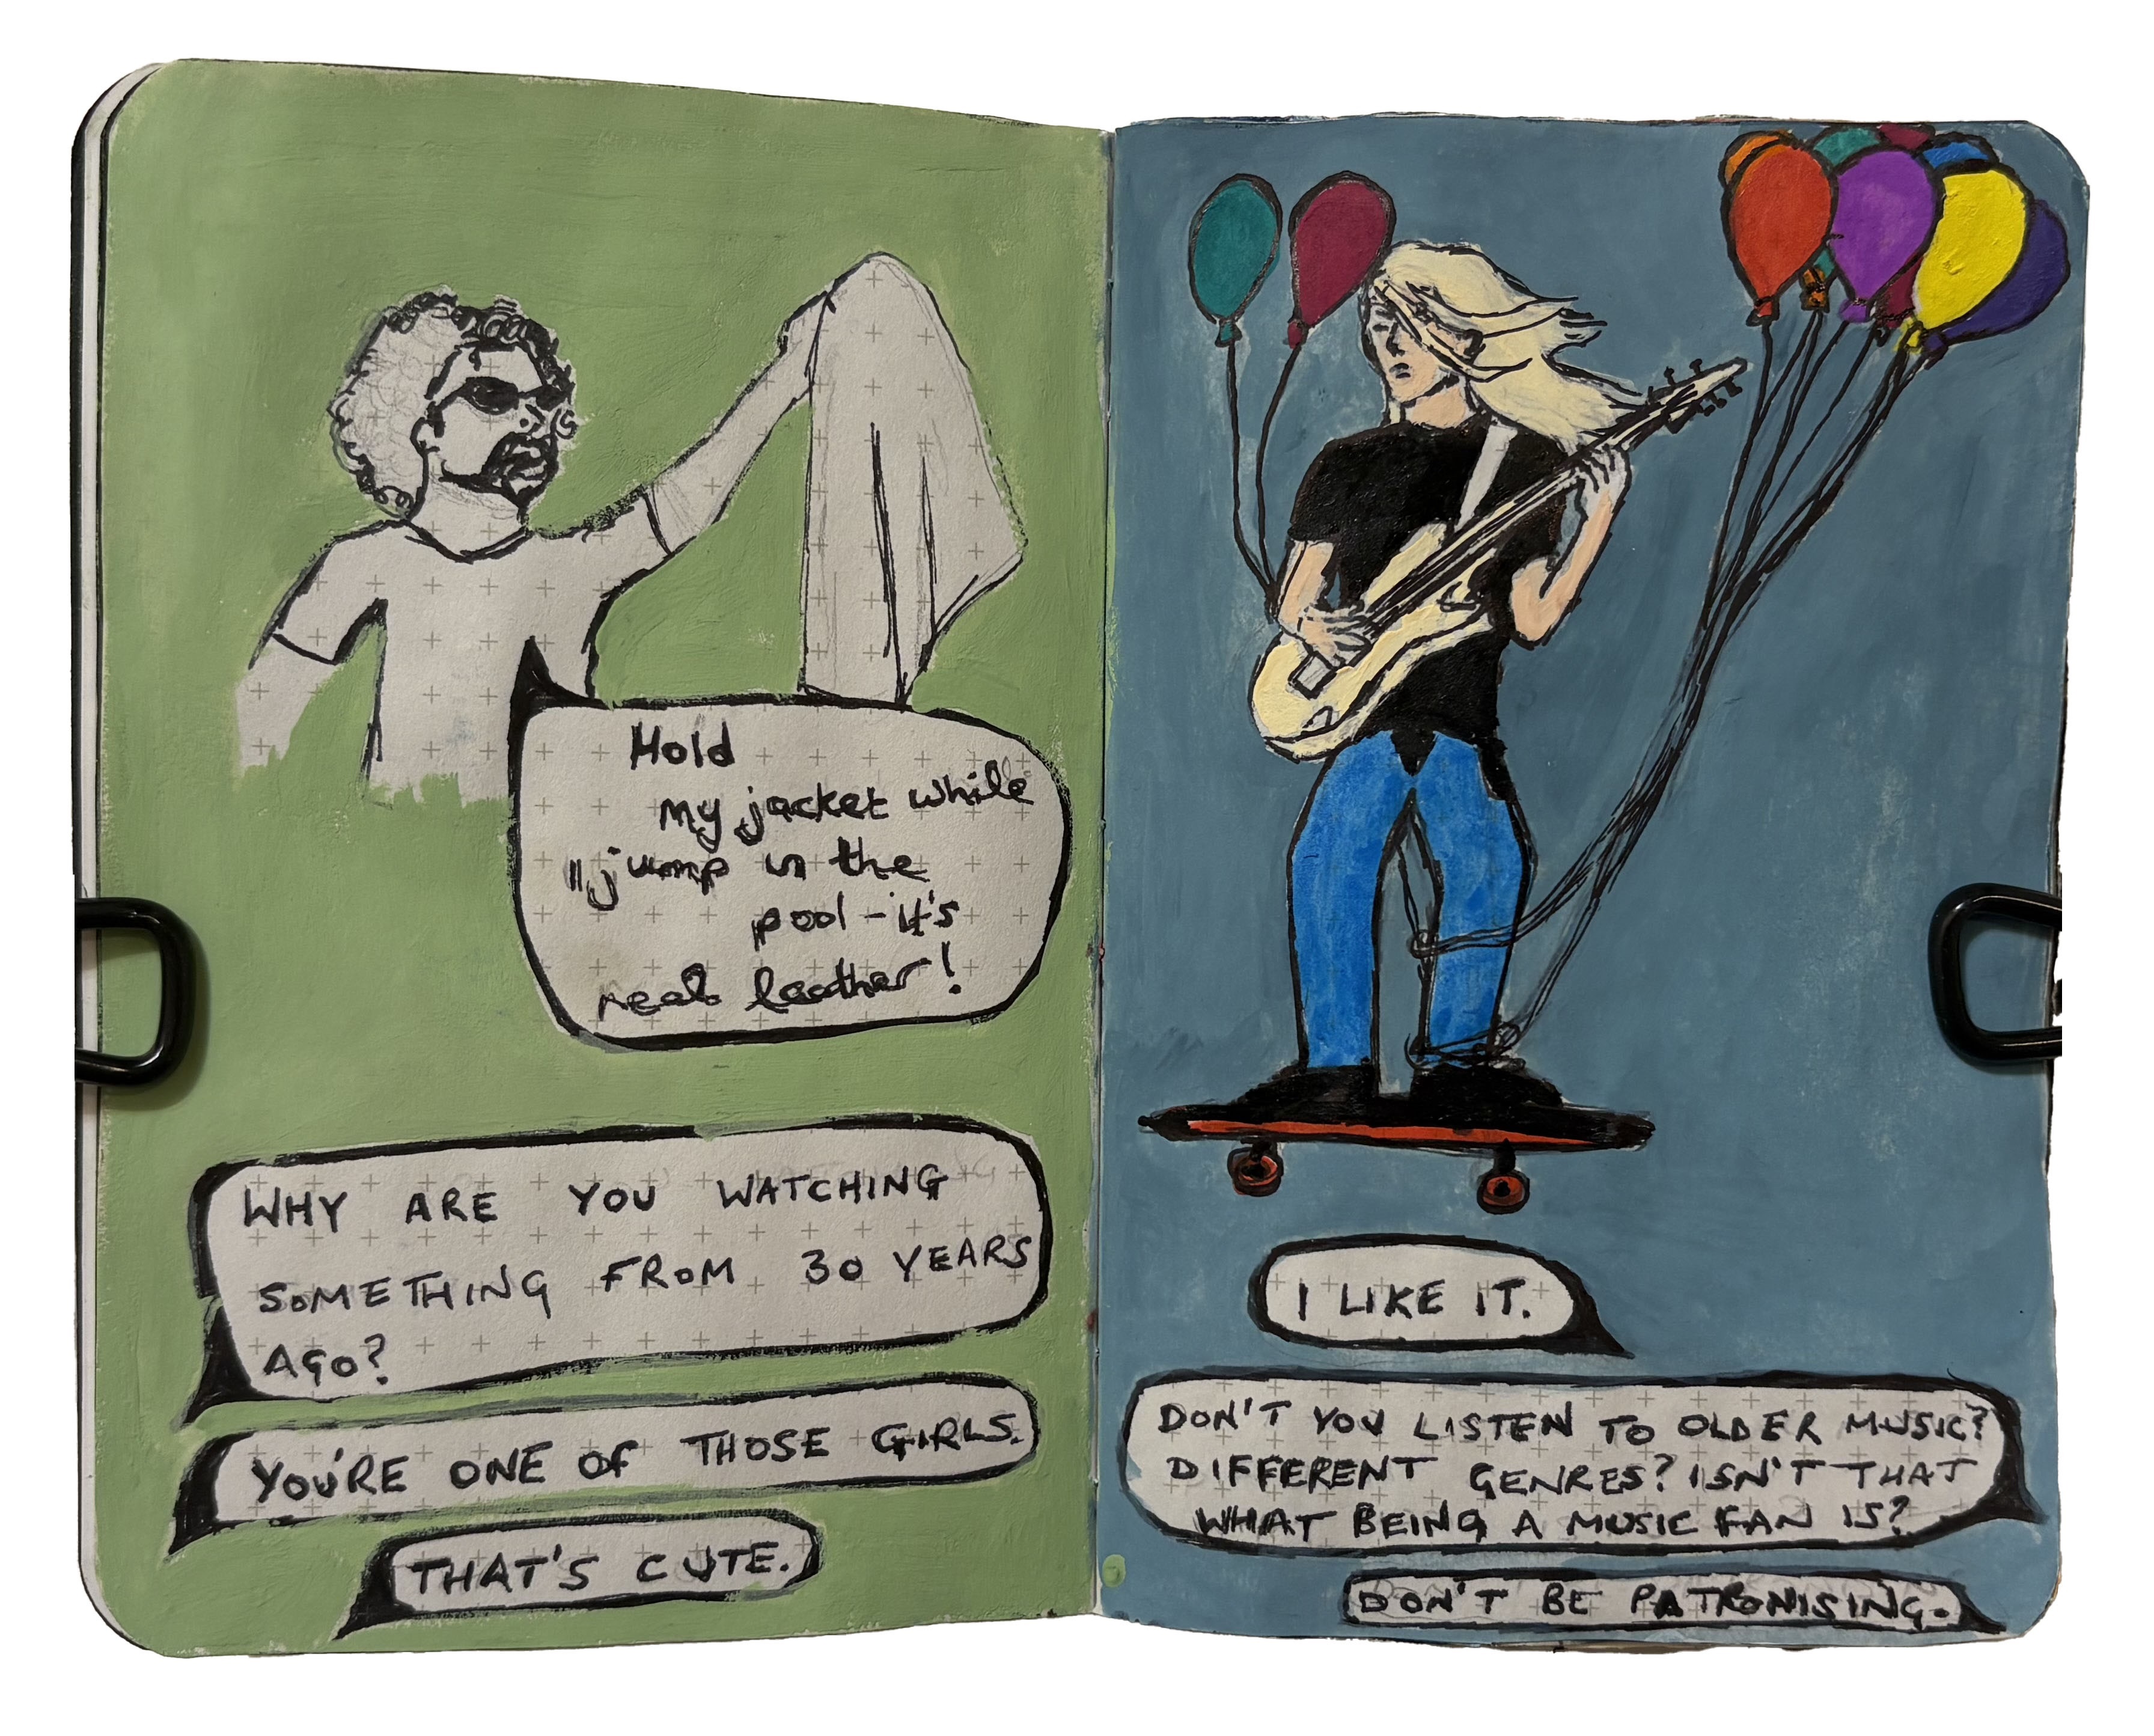 Hold
my jacket while
I jump in the
pool - it's
real leather!
WHY ARE YOU WATCHING
SOMETHING FROM 30 YEARS
AGO?
YOU'RE ONE OF THOSE GIRLS.
THAT'S CUTE.
I LIKE IT.
DON'T YOU LISTEN TO OLDER MUSIC?
DIFFERENT GENRES? ISN'T THAT
WHAT BEING A MUSIC FAN IS?
DON'T BE PATRONISING.